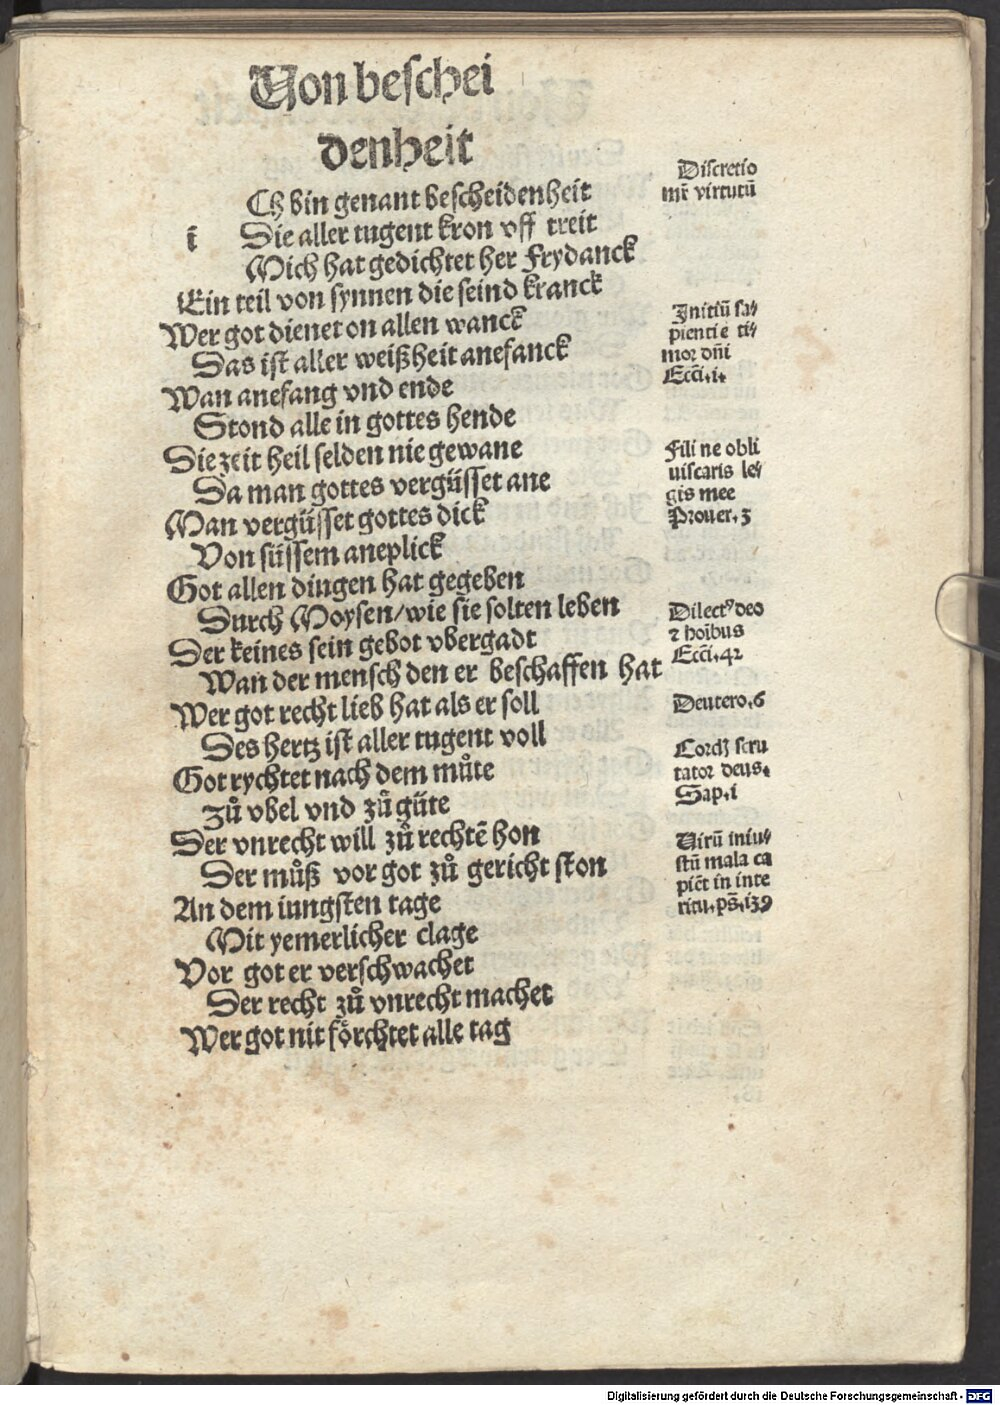 Von beschei
denheit
Ch bin genant bescheidenheit
i Die aller tugent kron vff treit
Mich hat gedichtet her Frydanck
Ein teil von synnen die seind kranck
Wer got dienet on allen wanck
Das ist aller weißheit anefanck
Wan anefang vnd ende
Stond alle in gottes hende
Die zeit heil selden nie gewane
Da man gottes vergüsset ane
Man vergüsset gottes dick
Von süssem aneplick
Got allen dingen hat gegeben
Durch Moysen/wie sie solten leben
Der keines sein gebot vbergadt
Wan der mensch den er beschaffen hat
Wer got recht lieb hat als er soll
Des hertz ist aller tugent voll
Got rychtet nach dem můte
Zů vbel vnd zů güte
Der vnrecht will zů rechtē hon
Der můß vor got zů gericht ston
An dem iungsten tage
Mit yemerlicher clage
Vor got er verschwachet
Der recht zů vnrecht machet
Wer got nit förchtet alle tag
Discretio
mr̄ virtutū
Initiū sa⸗
pientie ti⸗
mor dn̄i
Ecci̅.i.
Fili ne obli
uiscaris le⸗
gis mee
Prouer.3
Dilectꝰ deo
⁊ hoībus
Ecci̅.42
Deutero.6
Cordꝭ scru
tator deus.
Sap.i
Virū iniu⸗
stū mala ca
piēt in inte
ritu.ps̄.i39
Digitalisierung gefördert durch die Deutsche Forschungsgemeinschaft - DFG